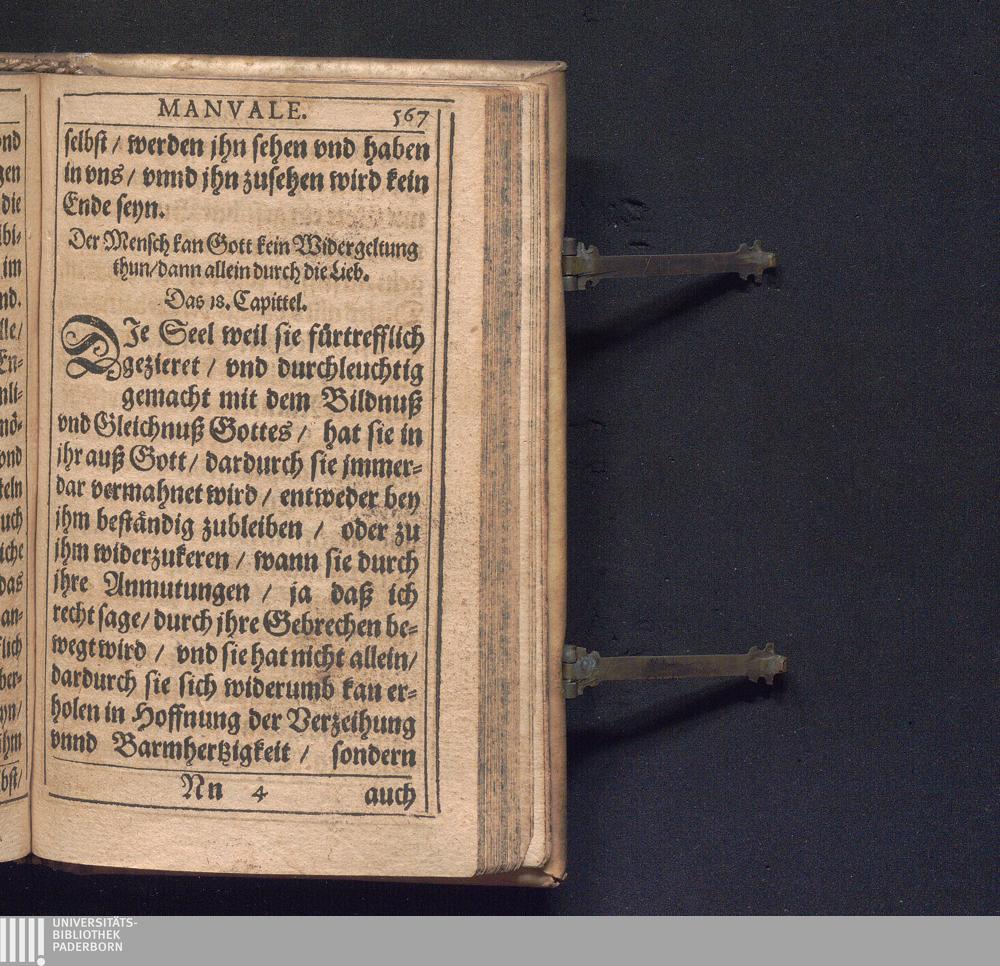 MANVALE. 567
selbst / werden jhn sehen vnd haben
in vns / vnnd jhn zusehen wird kein
Ende seyn.
Der Mensch kan Gott kein Widergeltung
thun/dann allein durch die Lieb.
Das 18. Capittel.
DJe Seel weil sie fürtrefflich
gezieret / vnd durchleuchtig
gemacht mit dem Bildnuß
vnd Gleichnuß Gottes / hat sie in
jhr auß Gott / dardurch sie jmmer-
dar vermahnet wird / entweder bey
jhm beständig zubleiben / oder zu
jhm widerzukeren / wann sie durch
jhre Anmutungen / ja daß ich
recht sage/ durch jhre Gebrechen be-
wegt wird / vnd sie hat nicht allein/
dardurch sie sich widerumb kan er-
holen in Hoffnung der Verzeihung
vnnd Barmhertzigkeit / sondern
Nn 4 auch
UNIVERSITÄTS-
BIBLIOTHEK
PADERBORN